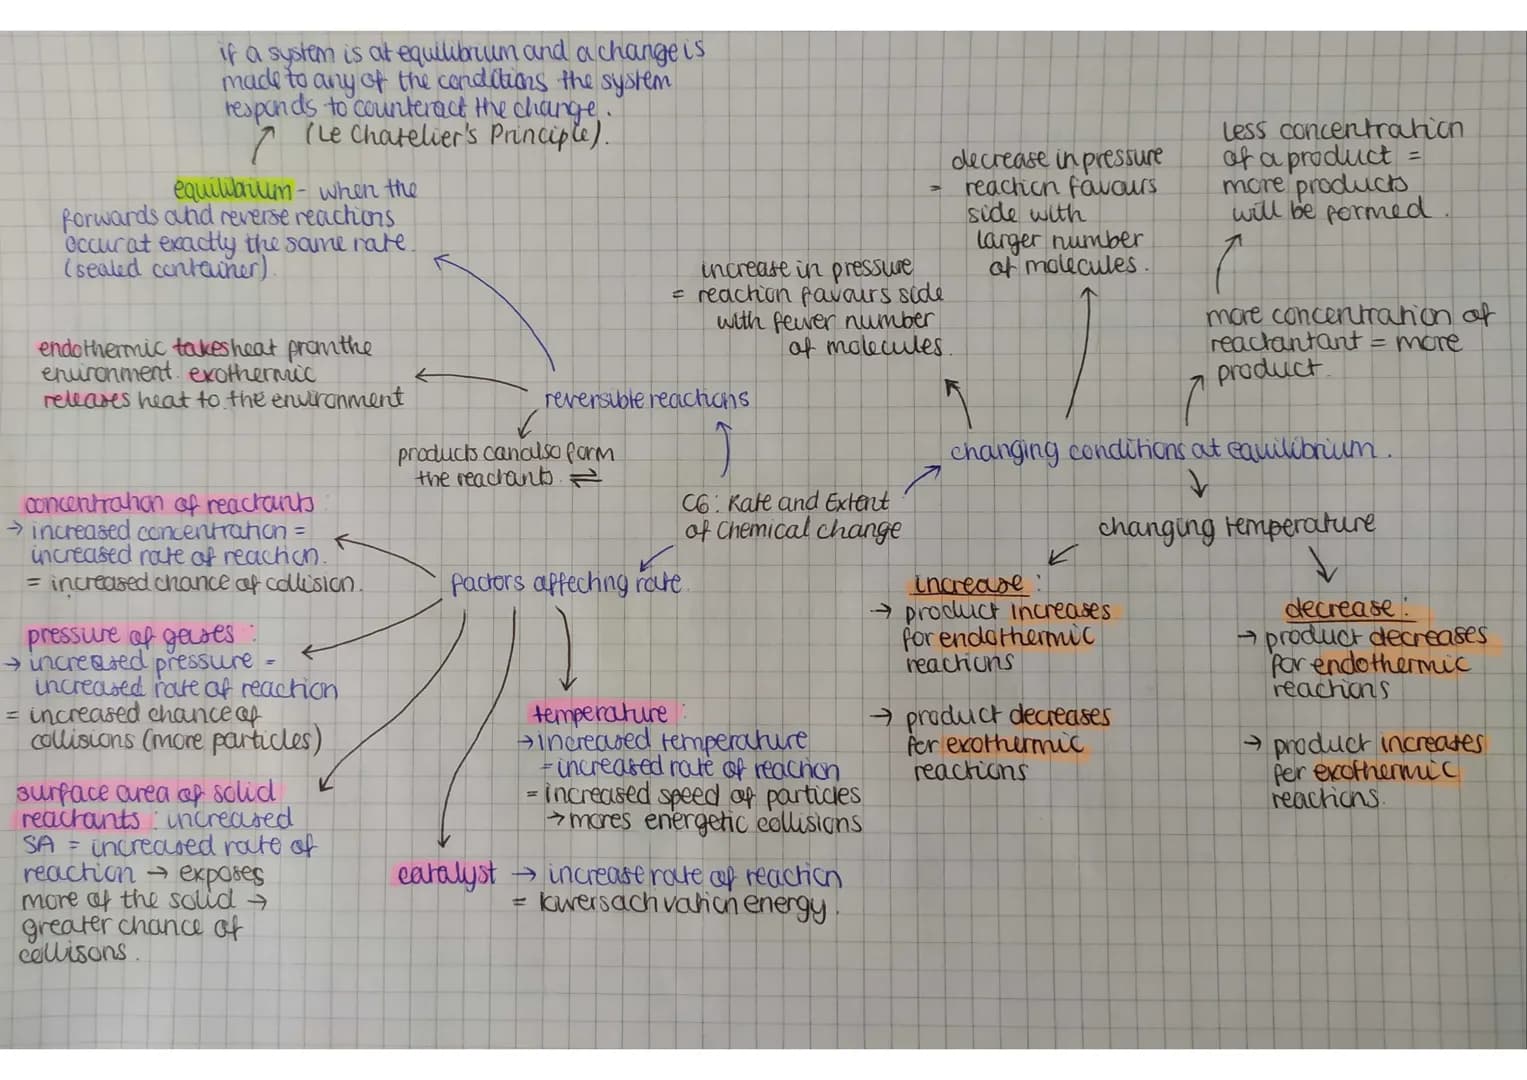 if a system is at equilibrium and a change is
made to any of the conditions the system
responds to counteract the change.
(Le Chatelier's Principle).
equilibrium - when the
forwards and reverse reactions
occur at exactly the same rate.
(sealed container)
endothermic takes heat from the
environment. exothermic
releases heat to the environment
reversible reactions
products can also form
the reactants ⇌
increase in pressure
= reaction favours side
with fewer number
of molecules.
decrease in pressure
= reaction favours
side with
larger number
of molecules.
less concentration
of a product =
more products
will be formed.
more concentration of
reactantant = more
product.
changing conditions at equilibrium.
C6: Rate and Extent
of Chemical change
changing temperature
increase:
→ product increases
for endothermic
reactions
→ product decreases
for exothermic
reactions
decrease:
→ product decreases
for endothermic
reactions
→ product increases
for exothermic
reactions.
factors affecting rate.
concentration of reactants:
→ increased concentration =
increased rate of reaction.
= increased chance of collision.
pressure of gases:
→ increased pressure =
increased rate of reaction
= increased chance of
collisions (more particles)
surface area of solid
reactants: increased
SA = increased rate of
reaction → exposes
more of the solid →
greater chance of
collisons.
temperature:
→ increased temperature
= increased rate of reaction
= increased speed of particles
→ mores energetic collisions
catalyst → increase rate of reaction
= lowers activation energy.